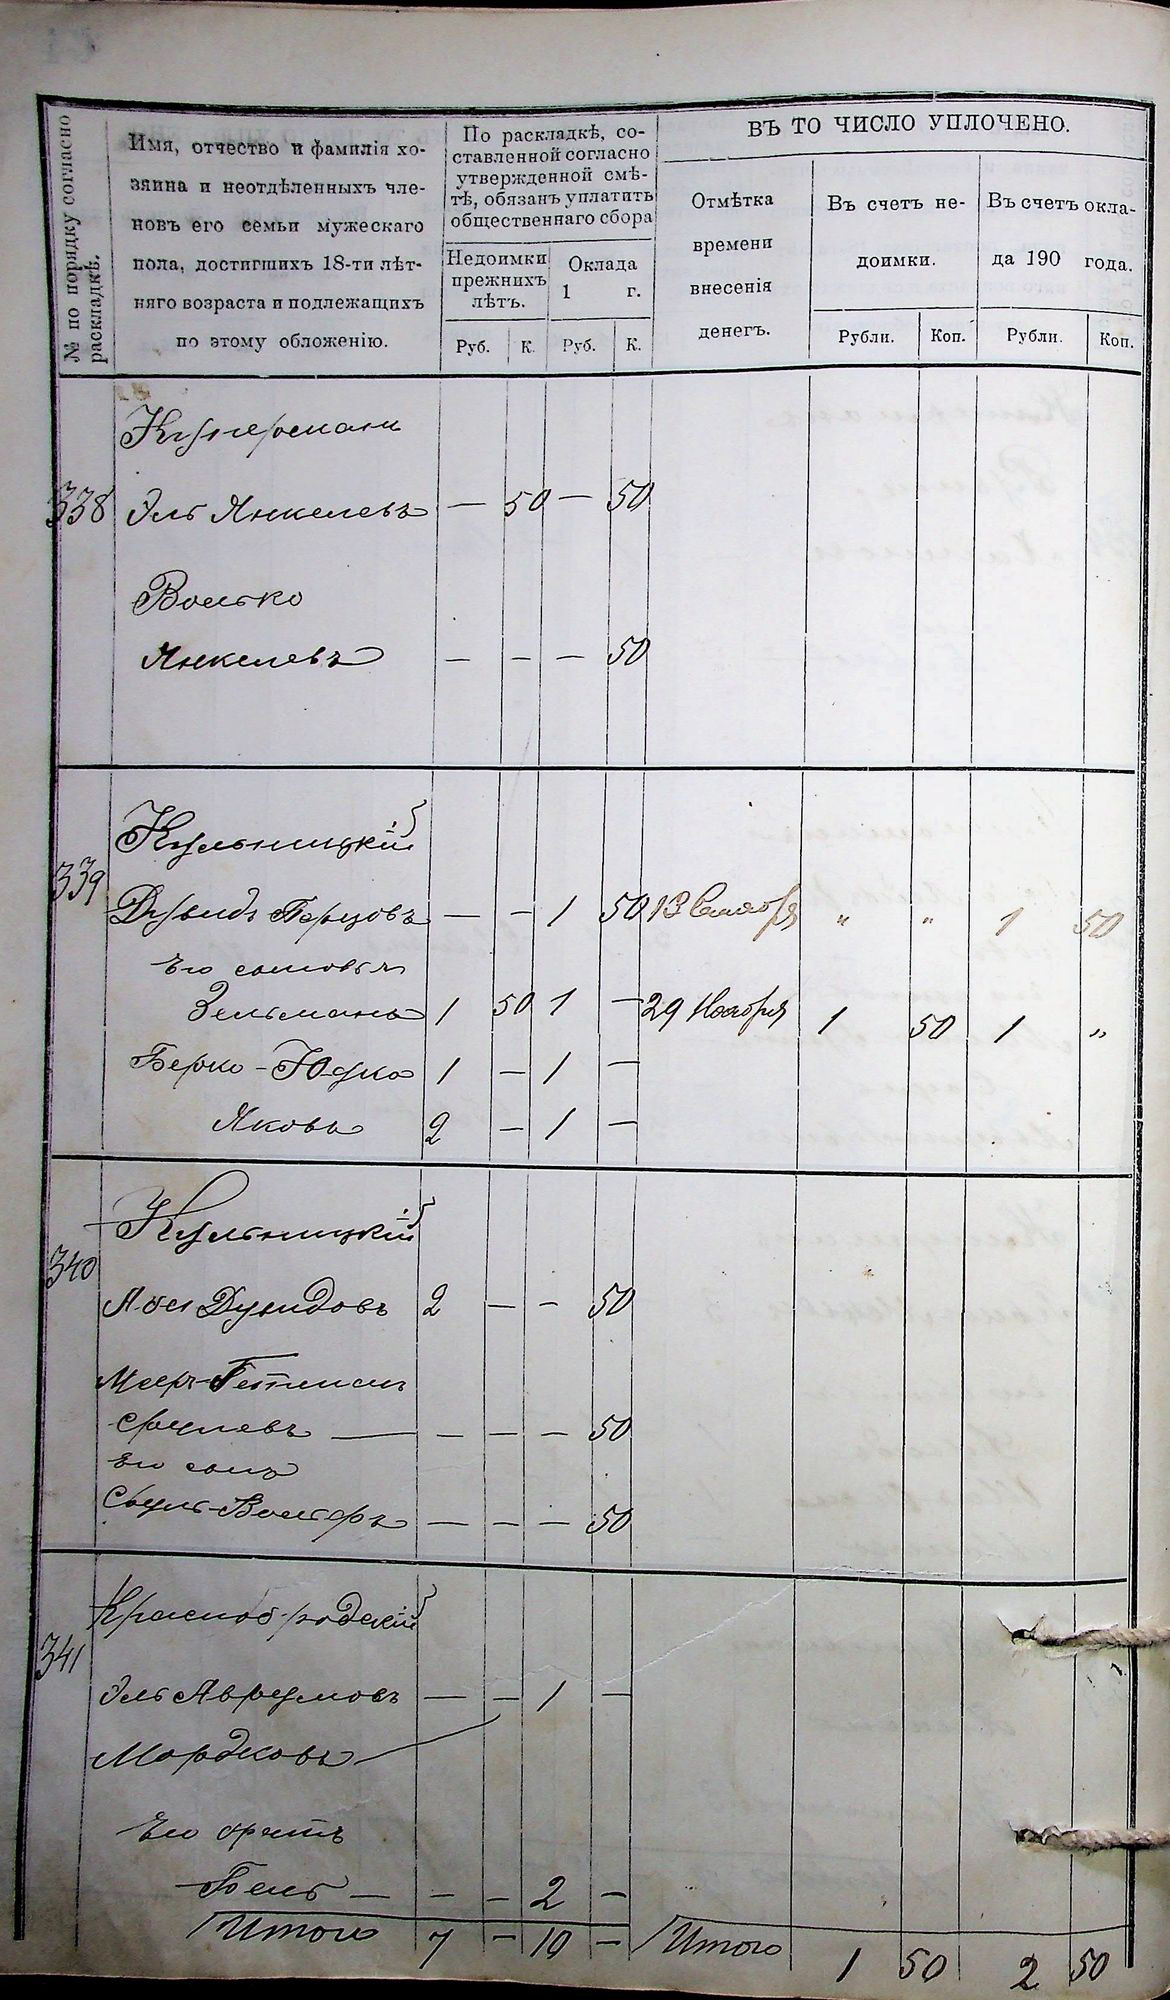 № по порядку согласно
раскладкѣ.
Имя, отчество и фамилія хо-
зяина и неотдѣленныхъ чле-
новъ его семьи мужескаго
пола, достигшихъ 18-ти лѣт-
няго возраста и подлежащихъ
по этому обложенію.
По раскладкѣ, со-
ставленной согласно
утвержденной смѣ-
тѣ, обязанъ уплатить
общественнаго сбора
Недоимки
прежнихъ
лѣтъ.
Оклада
1 г.
Руб. К. Руб. К.
ВЪ ТО ЧИСЛО УПЛОЧЕНО.
Отмѣтка
времени
внесенія
денегъ.
Въ счетъ не-
доимки.
Въ счетъ окла-
да 190 года.
Рубли. Коп. Рубли. Коп.
Куперманъ
338 Эль Янкелевъ — 50 — 50
Волько
Янкелевъ — — — 50
Кульницкій
339
Дувидъ Перцовъ — — 1 50 13 Октября " " 1 50
Его сыновья
Зельманъ 1 50 1 — 29 Ноября 1 50 1 "
Берко-Юдко 1 — 1 —
Яковъ 2 — 1 —
Кульницкій
340
Абель Дувидовъ 2 — — 50
Меер-
Сруллевъ — — — — 50
Его сынъ
Сруль-Вольфъ — — — 50
Красноб родскій
341
Эль Аврумовъ — — 1 —
Мордковъ
Его братъ
— — — 2 —
Итого 7 — 10 — Итого 1 50 2 50